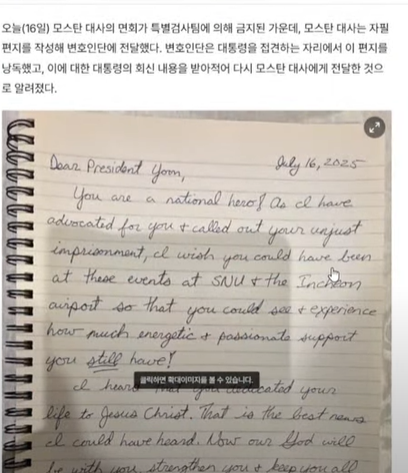 오늘(16일) 모스탄 대사의 면회가 특별검사팀에 의해 금지된 가운데, 모스탄 대사는 자필
편지를 작성해 변호인단에 전달했다. 변호인단은 대통령을 접견하는 자리에서 이 편지를
낭독했고, 이에 대한 대통령의 회신 내용을 받아적어 다시 모스탄 대사에게 전달한 것으
로 알려졌다.
July 16, 2025
Dear President Yoon,
You are a national hero! As I have
advocated for you & called out your unjust
imprisonment, I wish you could have been
at these events at SNU & the Incheon
airport so that you could see & experience
how much energetic & passionate support
you still have!
클릭하면 확대이미지를 볼 수 있습니다.
I heard that you dedicated your
life to Jesus Christ. That is the best news
I could have heard. Now our God will
be with you, strengthen you & keep you all